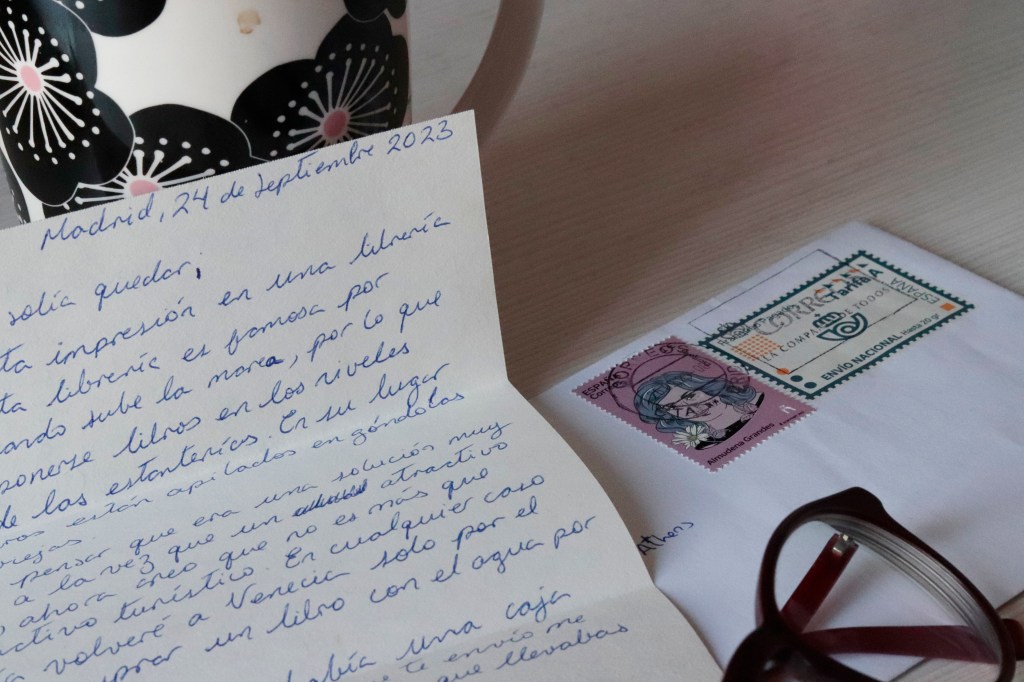 Madrid, 24 de septiembre 2023
solía quedar,
ta impresión en una librería
ta librería es famosa por
ando sube la marea, por lo que
ponerse libros en los niveles
de las estanterías. En su lugar
ros están apilados en góndolas
viejas.
pensar que era una solución muy
a la vez que un atractivo
ahora creo que no es más que
activo turístico. En cualquier caso
volveré a Venecia solo por el
mprar un libro con el agua por
había una caja
te envío me
que llevabas
CORREOS
Tarifa A
ESPAÑA
LA COMPAÑÍA DE TODOS
ENVÍO NACIONAL Hasta 20 gr
ESPAÑA
CORREOS
Almudena Grandes
Athens